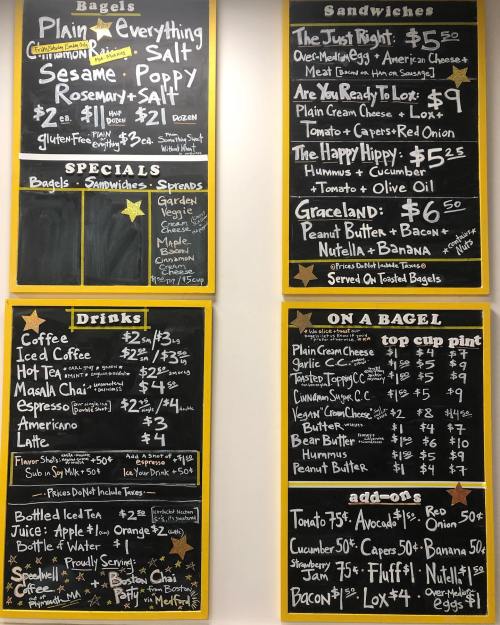 Bagels
Plain everything
Cinnamon Raisin Salt
Sesame · Poppy
Rosemary + Salt
$2 ea. $11 Half Dozen $21 Dozen
gluten-Free Plain or everything $3 ea. From Something Sweet Without Wheat
SPECIALS
Bagels · Sandwiches · Spreads
Garden
Veggie
Cream
Cheese
Maple
Bacon
Cinnamon
Cream
Cheese
Sandwiches
The Just Right: $5.50
Over-Medium egg + American Cheese +
Meat [Bacon or Ham or Sausage]
Are You Ready To Lox: $9
Plain Cream Cheese + Lox +
Tomato + Capers + Red Onion
The Happy Hippy: $5.25
Hummus + Cucumber
+ Tomato + Olive Oil
Graceland: $6.50
Peanut Butter + Bacon +
Nutella + Banana
* contains Nuts
Prices Do Not Include Taxes
Served On Toasted Bagels
Drinks
Coffee
Iced Coffee
Hot Tea
Masala Chai $4.50
espresso
Americano $3
Latte $4
Flavor Shots: +50¢ Add A Shot of espresso +$1.50
Sub in Soy Milk +50¢ Ice Your Drink +50¢
Prices Do Not Include Taxes
Bottled Iced Tea $2.50
Juice: Apple $1 Orange $2
Bottle of Water $1
Proudly Serving:
Speedwell Coffee out of Plymouth, MA + Boston Chai Party from Boston via Medford
ON A BAGEL
top cup pint
Plain Cream Cheese $1 $4 $7
Garlic C.C. $1.50 $5 $9
Toasted Topping C.C. $1.50 $5 $9
Cinnamon Sugar C.C. $1.50 $5 $9
Vegan "Cream Cheese" $2 $8
Butter $1 $4 $7
Bear Butter $1.50 $6 $10
Hummus $1.50 $5 $9
Peanut Butter $1 $4 $7
add-ons
Tomato 75¢ · Avocado $1.50 · Red Onion 50¢
Cucumber 50¢ · Capers 50¢ · Banana 50¢
Strawberry Jam 75¢ · Fluff $1 · Nutella $1.50
Bacon $1.50 · Lox $4 · Over-Medium eggs $1